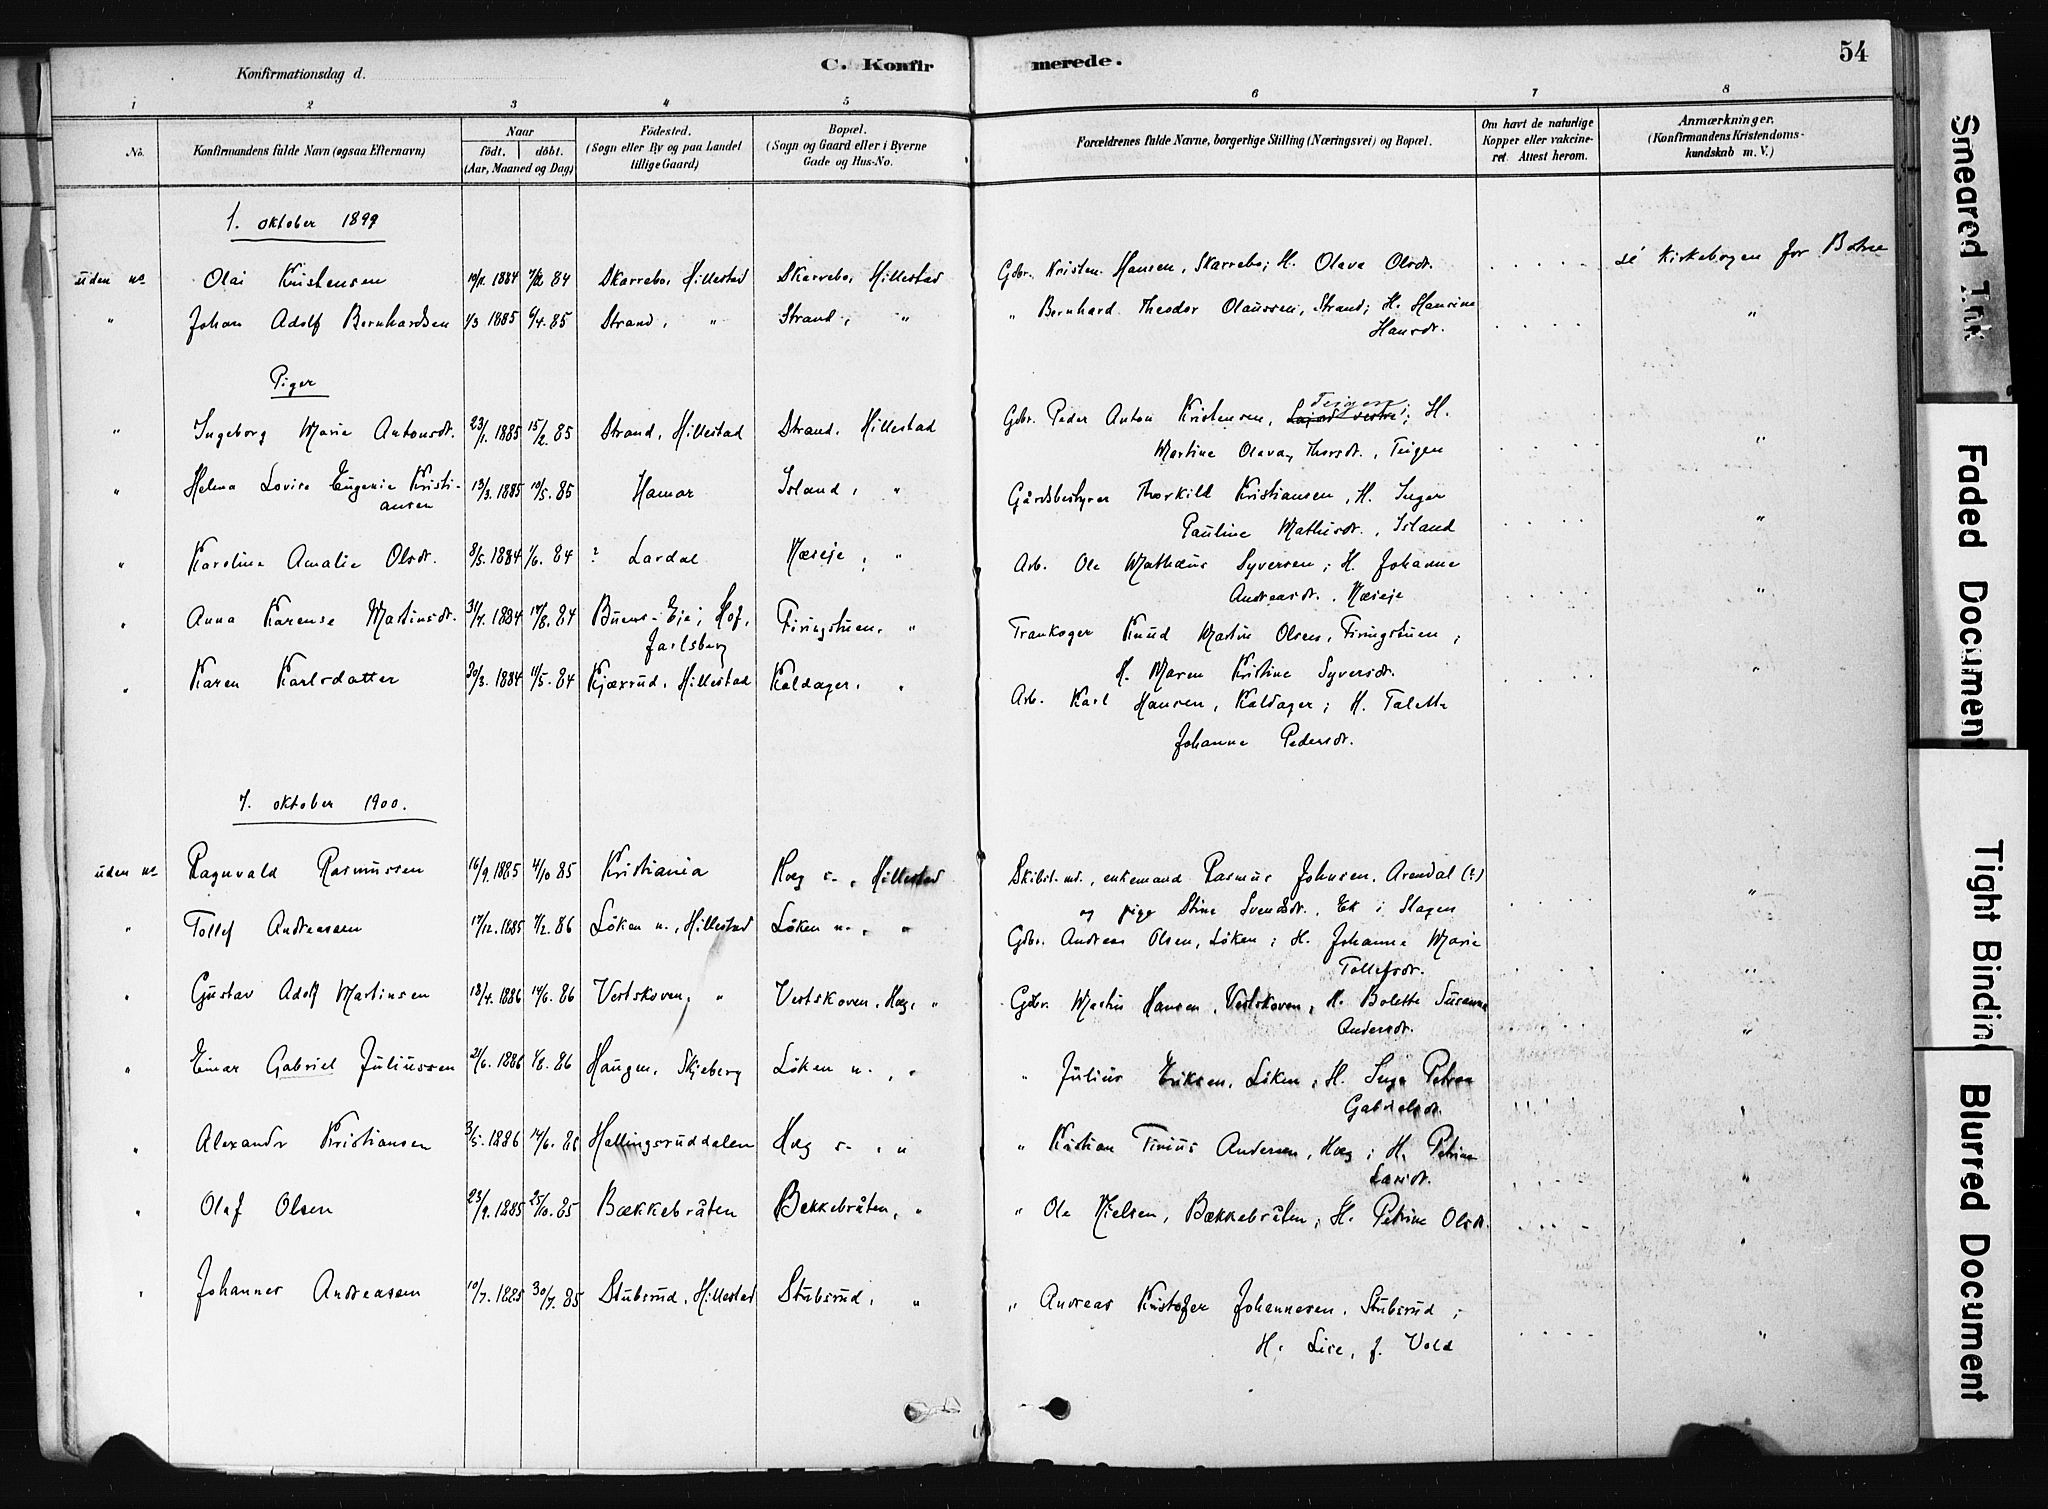 Konfirmationsdag d.
C. Konfirmerede.
54
1 2 3 4 5 6 7 8
No.
Konfirmandens fulde Navn (ogsaa Efternavn)
Naar
födt. döbt.
(Aar, Maaned og Dag)
Födested.
(Sogn eller By og paa Landet
tillige Gaard)
Bopæl.
(Sogn og Gaard eller i Byerne
Gade og Hus-No.
Forældrenes fulde Navne, borgerlige Stilling (Næringsvei) og Bopæl.
Om havt de naturlige
Kopper eller vakcine-
ret. Attest herom.
Anmærkninger.
(Konfirmandens Kristendoms-
kundskab m. V.)
1. oktober 1899
uden no Olai Kristensen 19/11. 1884 7/12 84 Skarrebo, Hillestad Skarrebo, Hillestad Gdbr. Kristen Hansen, Skarrebo; H. Olava Olsdt. . . . . se kirkebogen for Botne
" Johan Adolf Bernhardsen 1/3 1885 6/4. 85 Strand, " Strand, " " Bernhard Theodor Olaussen, Strand; H. Hansine . . . . "
Hansdt.
Piger
" Ingeborg Marie Antonsdt. 23/1. 1885 15/2. 85 Strand, Hillestad Strand, Hillestad Gdbr. Peder Anton Kristensen, Teigen; H.
Martine Olava Thorsdt., Teigen . . . . "
" Helma Lovise Eugenie Kristi- 13/3. 1885 10/5. 85 Hamar Island, " Gårdsbestyrer Thorkild Kristiansen, H. Inger
ansen Pauline Mathisdt., Island . . . . "
" Karoline Amalie Olsdt. 8/5. 1884 1/6. 84 ? Lardal Næseje, " Arb. Ole Mathæus Syversen; H. Johanne
Andreasdt., Næseje . . . . "
" Anna Karense Martinsdt. 31/7. 1884 17/8. 84 Buens-Eje, Hof, Firingstuen, " Trankoger Knud Martin Olsen, Firingstuen,
Jarlsberg H. Maren Kristine Syversdt. . . . . "
" Karen Karlsdatter 30/3. 1884 11/5. 84 Kjærrud, Hillestad Kaldager, " Arb. Karl Hansen, Kaldager; H. Talette
Johanne Pedersdt.
7. oktober 1900.
uden no Ragnvald Rasmussen 16/9. 1885 4/10 85 Kristiania Hæg s., Hillestad Skibst.md., enkemand Rasmus Johnsen, Arendal (?)
og pige Stine Svendsdt., Ek i Slagen . . . . "
" Tollef Andreassen 17/12. 1885 7/2. 86 Löken n., Hillestad Löken n., " Gdbr. Andreas Olsen, Löken; H. Johanne Marie
Tollefsdt. . . . . "
" Gustav Adolf Martinsen 18/4. 1886 14/6. 86 Vestskoven, " Vestskoven, Hæg, " Gdbr. Martin Hansen, Vestskoven, H. Bolette Susanne
Andersdt. . . . . "
" Einar Gabriel Juliussen 21/6. 1886 1/8. 86 Haugen, Skjeberg Löken n., " " Julius Eriksen, Löken; H. Inga Petrea
Gabrielsdt. . . . . "
" Alexander Kristiansen 3/5. 1886 14/6. 86 Hallingsruddalen Hæg s., " " Kristian Andersen, Hæg; H. Petrine
Larsdt. . . . . "
" Olaf Olsen 23/9. 1885 25/10. 85 Bækkebråten Bekkebråten, " " Ole Nielsen, Bækkebråten; H. Petrine Olsdt. . . . . "
" Johannes Andreassen 10/7. 1885 30/7. 85 Stubsrud, Hillestad Stubsrud, " " Andreas Kristofer Johannesen, Stubsrud;
H. Lise, f. Vold . . . . "
Smeared Ink
Faded Document
Tight Binding
Blurred Document